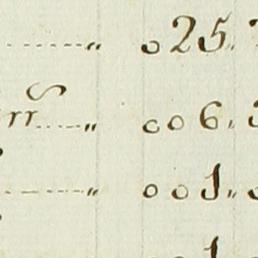 „ 025„
rr „ 006„
„ 001„
1